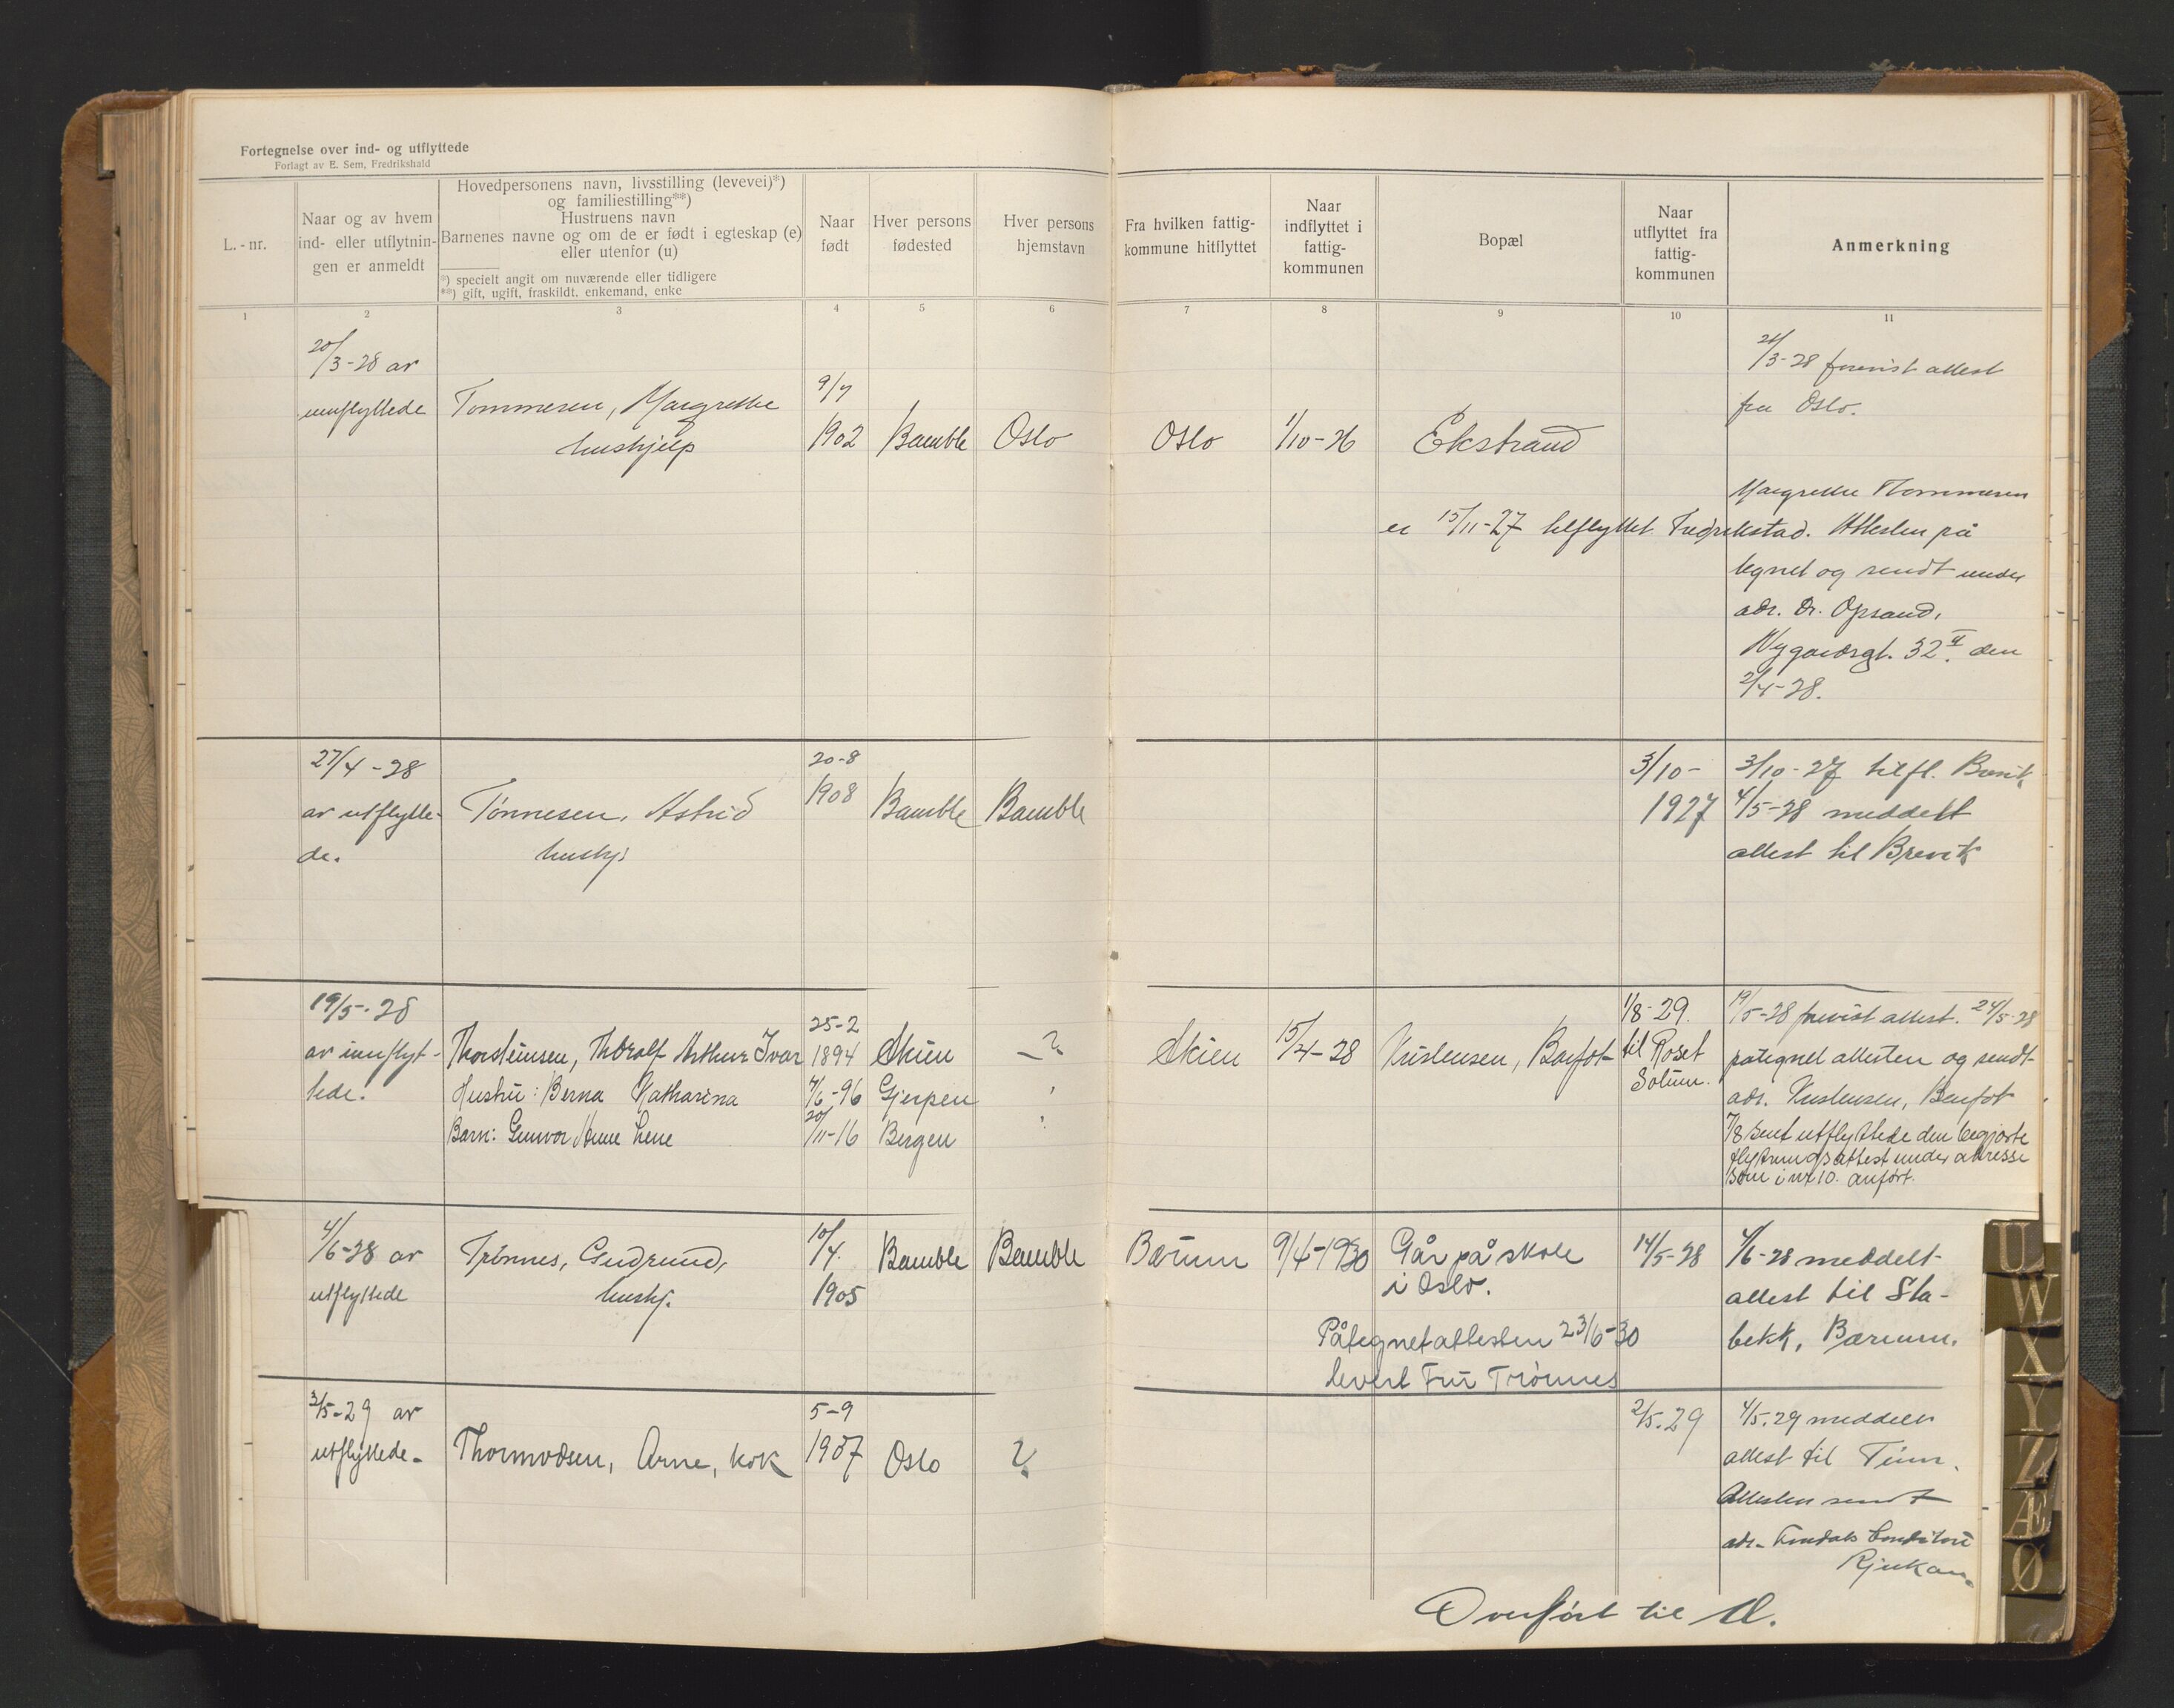 Fortegnelse over ind- og utflyttede
Forlagt av E. Sem, Fredrikshald
L.-nr.
Naar og av hvem
ind- eller utflytnin-
gen er anmeldt
Hovedpersonens navn, livsstilling (levevei)*)
og familiestilling**)
Hustruens navn
Barnenes navne og om de er født i egteskap (e)
eller utenfor (u)
*) specielt angit om nuværende eller tidligere
**) gift, ugift, fraskildt, enkemand, enke
Naar
født
Hver persons
fødested
Hver persons
hjemstavn
Fra hvilken fattig-
kommune hitflyttet
Naar
indflyttet i
fattig-
kommunen
Bopæl
Naar
utflyttet fra
fattig-
kommunen
Anmerkning
1 2 3 4 5 6 7 8 9 10 11
20/3-28 av
innflyttede
Tommesen, Margrethe
hushjelp
9/7
1902
Bamble
Oslo
Oslo
1/10-26
Ekstrand
21/3-28 forevist attest
fra Oslo.
Margrethe Tommesen
er 15/11-27 tilflyttet Fredrikstad. Attesten på
tegnet og sendt under
adr. Dr. Opsand,
Nygaardsgt. 32 II. den
2/4-28.
27/4-28
av utflytte-
de.
Tønnesen, Astrid
hushj.
20-8
1908
Bamble
Bamble
3/10-
1927
3/10-27 tilfl. Brevik
4/5-28 meddelt
attest til Brevik
19/5-28
av innflyt-
tede.
Thorsteinsen, Thoralf Arthur Ivar
Hustru: Berna Katharina
Barn: Gunvor Anne Lene
25-2
1894
4/6-96
20/11-16
Skien
Gjerpen
Bergen
-?
Skien
15/4-28
Kristensen, Barfot
1/8-29.
til Roset
Solum.
19/5-28 forevist attest. 24/5-28
påtegnet attesten og sendt
adr. Kristensen, Barfot
7/8 sent utflyttede den begjærte
flytningsattest under adresse
som i nr 10. anført.
4/6-28 av
utflyttede
Trønnes, Gudrund,
hushj.
10/4.
1905
Bamble
Bamble
Bærum
9/4-1930
Går på skole
i Oslo.
Påtegnet attesten 23/6-30
levert Fru Trønnes
14/5-28
4/6-28 meddelt
attest til Sta-
bekk, Bærum.
3/5-29 av
utflyttede.
Thormodsen, Arne, kok
5-9
1907
Oslo
?
2/5.29
4/5.29 meddelt
attest til Tinn.
Attesten sendt
adr.
Rjukan.
Overført til U.
U
W
X
Y
Z
Æ
Ø